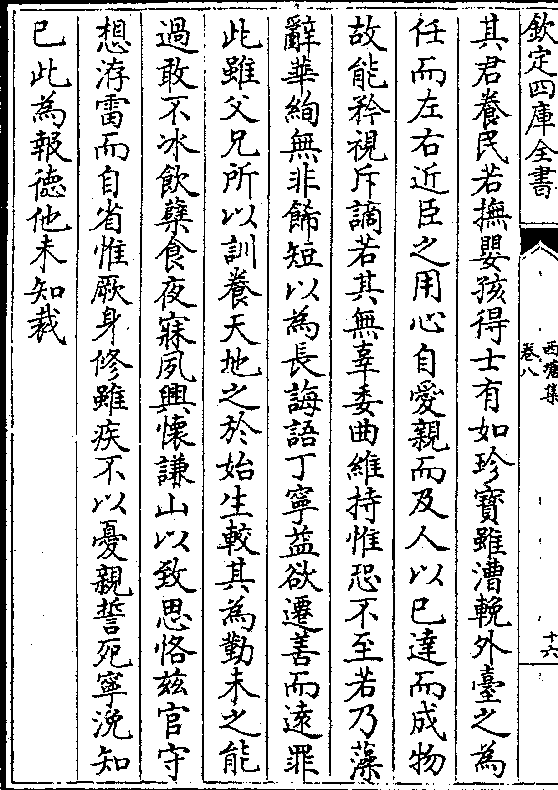 欽定四庫全書
西塘集
卷八
十六
其君養民若撫嬰孩得士有如珍寶雖漕輓外臺之為
任而左右近臣之用心自愛親而及人以已達而成物
故能矜視斥謫若其無辜委曲維持惟恐不至若乃藻
辭華絢無非飾短以為長誨語丁寧益欲遷善而遠罪
此雖父兄所以訓養天地之於始生較其為勤未之能
過敢不冰飲蘖食夜寐夙興懷謙山以致思恪兹官守
想洊雷而自省惟厥身修雖疾不以憂親誓死寧浼知
已此為報德他未知裁